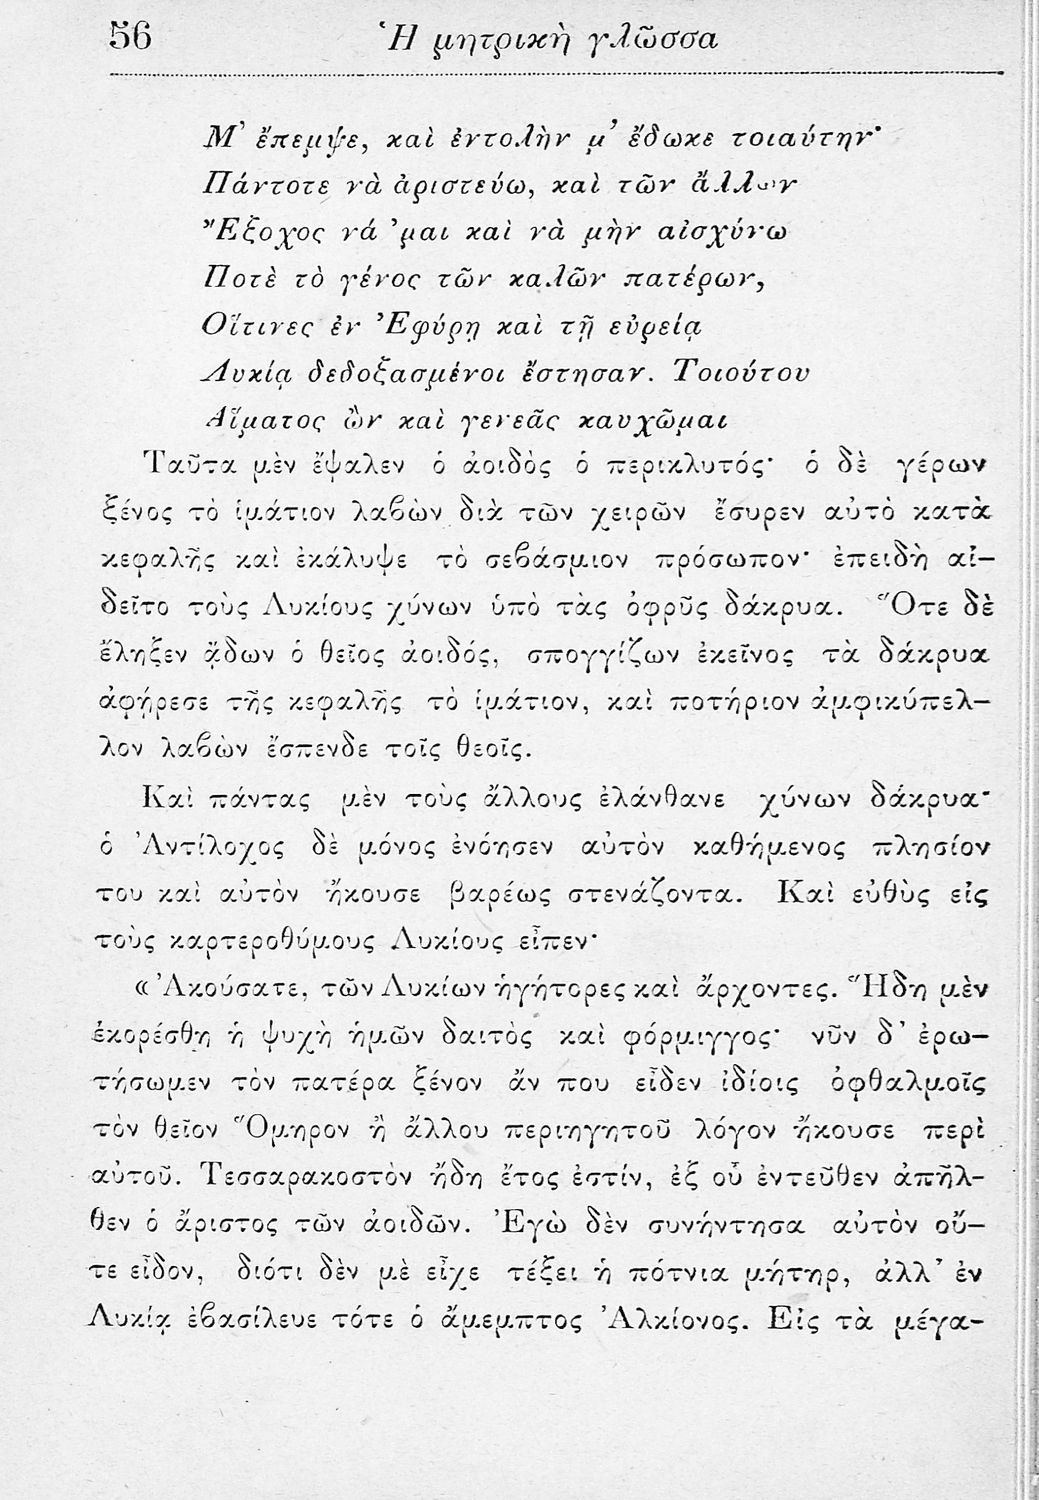 56 Ἡ μητρικὴ γλῶσσα
Μ' ἔπεμψε, καὶ ἐντολὴν μ' ἔδωκε τοιαύτην·
Πάντοτε νὰ ἀριστεύω, καὶ τῶν ἄλλων
Ἔξοχος νά 'μαι καὶ νὰ μὴν αἰσχύνω
Ποτὲ τὸ γένος τῶν καλῶν πατέρων,
Οἵτινες ἐν Ἐφύρῃ καὶ τῇ εὐρείᾳ
Λυκίᾳ δεδοξασμένοι ἔστησαν. Τοιούτου
Αἵματος ὢν καὶ γενεᾶς καυχῶμαι
Ταῦτα μὲν ἔψαλεν ὁ ἀοιδὸς ὁ περικλυτός· ὁ δὲ γέρων
ξένος τὸ ἱμάτιον λαβὼν διὰ τῶν χειρῶν ἔσυρεν αὐτὸ κατὰ
κεφαλῆς καὶ ἐκάλυψε τὸ σεβάσμιον πρόσωπον· ἐπειδὴ αἰ–
δεῖτο τοὺς Λυκίους χύνων ὑπὸ τὰς ὀφρῦς δάκρυα. Ὅτε δὲ
ἔληξεν ᾄδων ὁ θεῖος ἀοιδός, σπογγίζων ἐκεῖνος τὰ δάκρυα
ἀφῄρεσε τῆς κεφαλῆς τὸ ἱμάτιον, καὶ ποτήριον ἀμφικύπελ–
λον λαβὼν ἔσπενδε τοῖς θεοῖς.
Καὶ πάντας μὲν τοὺς ἄλλους ἐλάνθανε χύνων δάκρυα·
ὁ Ἀντίλοχος δὲ μόνος ἐνόησεν αὐτὸν καθήμενος πλησίον
του καὶ αὐτὸν ἤκουσε βαρέως στενάζοντα. Καὶ εὐθὺς εἰς
τοὺς καρτεροθύμους Λυκίους εἶπεν·
«Ἀκούσατε, τῶν Λυκίων ἡγήτορες καὶ ἄρχοντες. Ἤδη μὲν
ἐκορέσθη ἡ ψυχὴ ἡμῶν δαιτὸς καὶ φόρμιγγος· νῦν δ' ἐρω–
τήσωμεν τὸν πατέρα ξένον ἄν που εἶδεν ἰδίοις ὀφθαλμοῖς
τὸν θεῖον Ὅμηρον ἢ ἄλλου περιηγητοῦ λόγον ἤκουσε περὶ
αὐτοῦ. Τεσσαρακοστὸν ἤδη ἔτος ἐστίν, ἐξ οὗ ἐντεῦθεν ἀπῆλ–
θεν ὁ ἄριστος τῶν ἀοιδῶν. Ἐγὼ δὲν συνήντησα αὐτὸν οὔ–
τε εἶδον, διότι δὲν μὲ εἶχε τέξει ἡ πότνια μήτηρ, ἀλλ' ἐν
Λυκίᾳ ἐβασίλευε τότε ὁ ἄμεμπτος Ἀλκίονος. Εἰς τὰ μέγα–